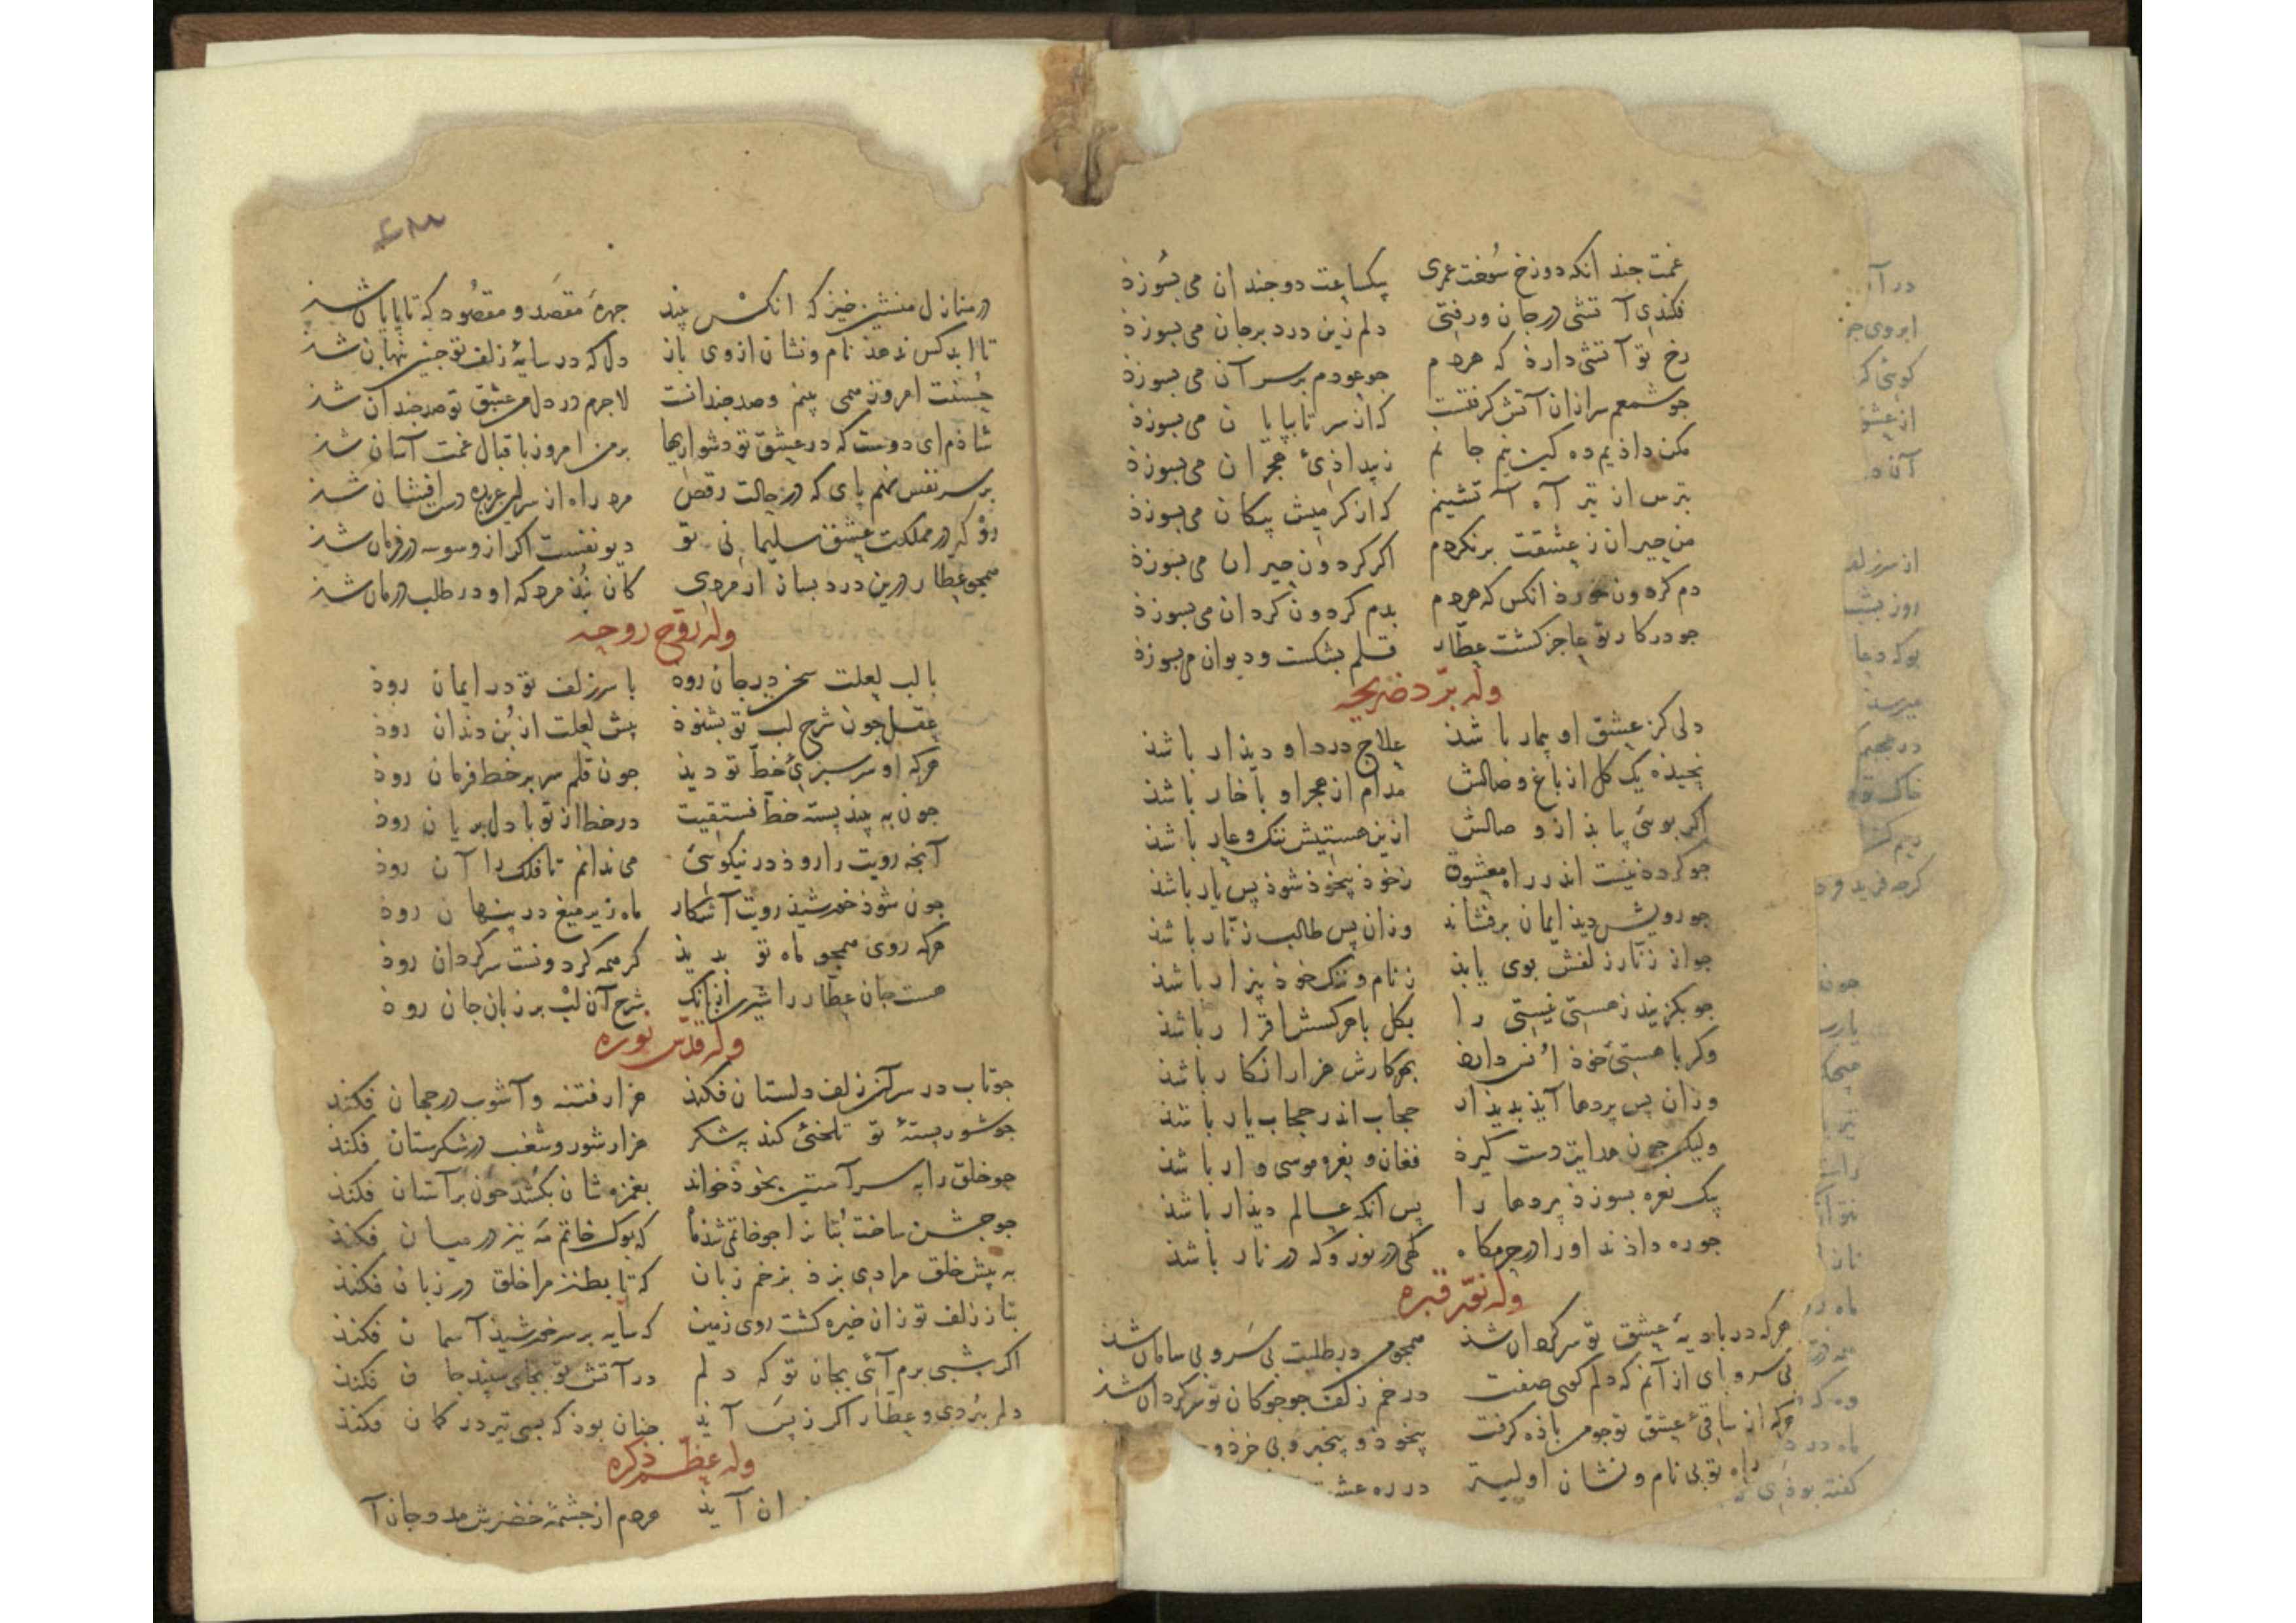 غمت جندانکه دوزخ سوخت عمری   بیکساعت دوجندان می بسوزذ
فکندی آتشی درجان و رفتی   دلم زین درد برجان می بسوزذ
رخ تو آتشی دارذ که هردم   جوعودم برسر آن می بسوزذ
جوشمعم سر ازان آتش کرفتست   که از سر تا بپایان می بسوزذ
مکن داذیم ده کین نیم جانم   ز بیداذی هجران می بسوزذ
بترس از تیر آه آتشینم   که از کرمیش پیکان می بسوزذ
من حیران ز عشقت برنکردم   اکرکردون حیران می بسوزذ
دم کردون خورذ انکس که هردم   بدم کردون کردان می بسوزذ
جو درکار تو عاجز کشت عطار   قلم بشکست و دیوان می بسوزذ
وله برد ضریحه
دلی کز عشق او بیمار باشذ   علاج درد او دیذار باشذ
نجیذه یک کل از باغ وصالش   مدام از هجر او باخار باشذ
اکر بوئی یابذ از وصالش   ازین هستیش ننک وعار باشذ
جو کرده نیست اندر راه معشوق   زخوذ بیخوذ شوذ پس یار باشذ
جو رویش دیذ ایمان برفشاند   وزان پس طالب زنار باشذ
جو از زنار زلفش بوی یابذ   ز نام و ننک خوذ بیزار باشذ
جو بکزیند ز هستی نیستی را   بکل باهرکسش اقرار باشذ
وکر با هستی خوذ انس دارذ   بهرکارش هزار انکار باشذ
وزان پس پردها آیذ بدیذار   حجاب اندر حجاب یار باشذ
ولیکن جون هدایت دست کیرذ   فغان و نعره موسی وار باشذ
یک نعره بسوزذ پردها را   پس آنکه عالم دیذار باشذ
جو ره داذند او را درحرمکاه   کهی در نور وکه در نار باشذ
وله نور قبره
هرکه در بادیه عشق تو سرکردان شذ   همجو من درطلبت بی سر و بی سامان شذ
بی سر و بای از آنم که دلم کوی صفت   در خم زلف جوجوکان تو سرکردان شذ
هرکه از ساقی عشق تو جومن باذه کرفت   بیخوذ و بیخبر و بی خرذ و
راه تو بی نام و نشان اولیتر   در ره عشـ
در منازل منشین خیز که انکس بیند   جهره مقصد و مقصود که تا پایان شذ
تا ابد کس ندهذ نام و نشان از وی باز   دل که در سایه زلف تو جنین پنهان شذ
حسنت امروز همی بینم و صد جندانست   لاجرم در دل من عشق تو صد جندان شذ
شاذم ای دوست که در عشق تو دشواریها   بر من امروز باقبال غمت آسان شذ
بر سر نفس نهم بای که در حالت رقص   مرد راه از سر این عربده دست افشان شذ
رو که در مملکت عشق سلیمانی تو   دیو نفست اکر از وسوسه در فرمان شذ
همجو عطار درین درد بساز ار مردی   کان نبذ مرد که او در طلب درمان شذ
وله روح روحه
با لب لعلت سخن درجان روذ   با سر زلف تو در ایمان روذ
عقل جون شرح لب تو بشنوذ   پیش لعلت از بن دندان روذ
هرکه او سرسبزی خط تو دیذ   جون قلم سر بر خط فرمان روذ
جون به بیند پسته خط فستقیت   در خط از تو با دل بریان روذ
آنجه رویت را روذ در نیکوئی   می ندانم تا فلک را آن روذ
جون شوذ خورشیذ رویت آشکار   ماه زیر میغ در پنهان روذ
هرکه روی همجو ماه تو بدیذ   کر همه کردونست سرکردان روذ
هست جان عطار را شیرین ازانک   شرح آن لب بر زبان جان روذ
وله قدس نوره
جو تاب در سر آن زلف دلستان فکنذ   هزار فتنه و آشوب درجهان فکنذ
جو شور پسته تو تلخئی کند به شکر   هزار شور و شغب در شکرستان فکنذ
جو خلق را به سر آستین بخوذ خواند   بغمزه شان بکشذ خون برآستان فکنذ
جو جشن ساخت بتان را جو خاتمی شذ ماه   که بوک خاتم مه نیز در میان فکنذ
به پیش خلق مرا دی بزذ بزخم زبان   که تا بطنز مرا خلق در زبان فکنذ
بتا ز زلف تو زان خیره کشت روی زمین   که سایه بر سر خورشیذ آسمان فکنذ
اکر شبی برم آئی بجان تو که دلم   در آتش تو بجای سپند جان فکنذ
دلم ببردی و عطار اکر ز پس آیذ   جنان بوذ که پسی تیر در کمان فکنذ
وله عظم ذکره
ـان آیذ   هردم از جشمه خضرش مدد جان آ